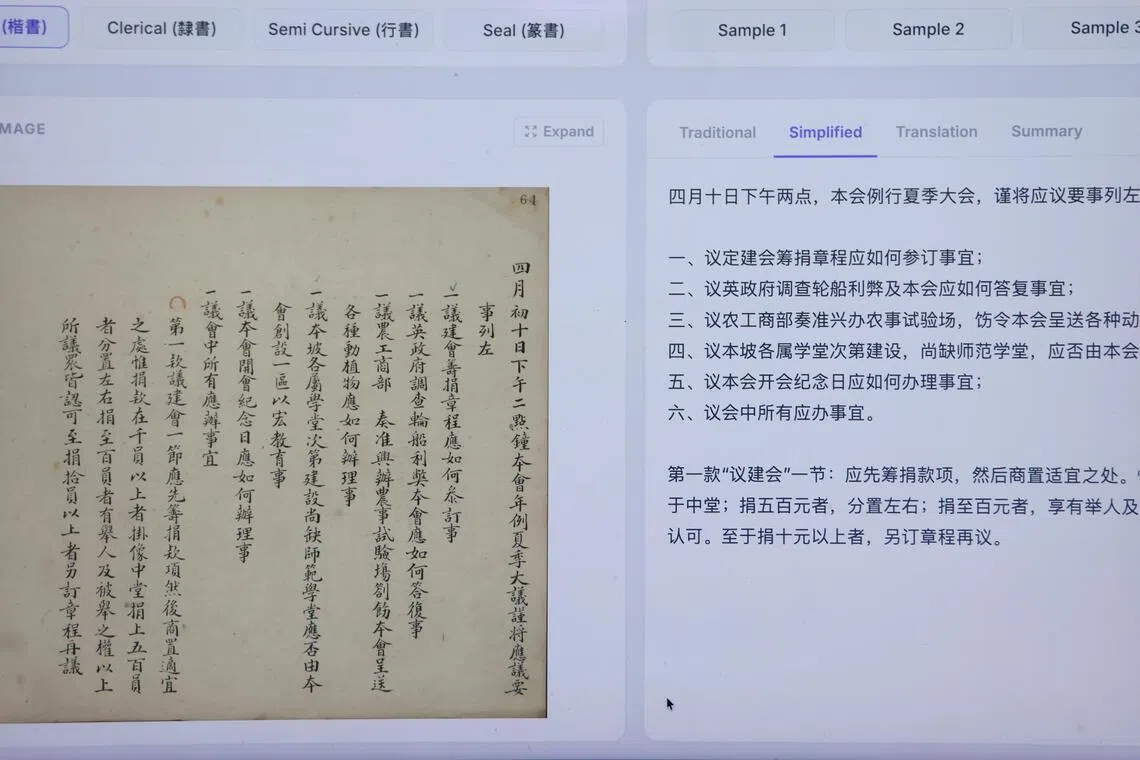 (楷書)
Clerical (隸書)
Semi Cursive (行書)
Seal (篆書)
Sample 1
Sample 2
Sample 3
MAGE
Expand
64
四月初十日下午二點鐘本會年例夏季大議謹將應議要
事列左
一議建會籌捐章程應如何叅訂事
一議英政府調查輪船利獘本會應如何答復事
一議農工商部 奏准興辦農事試驗塲劄飭本會呈送
各種動植物應如何辦理事
一議本坡各屬學堂次第建設尚缺師範學堂應否由本
會創設一區以宏教育事
一議本會開會紀念日應如何辦理事
一議會中所有應辦事宜
第一款議建會一節應先籌捐欵項然後商置適宜
之處惟捐款在千員以上者掛像中堂捐上五百員
者分置左右捐至百員者有舉人及被舉之權以上
所議眾皆認可至捐拾員以上者另訂章程再議
Traditional
Simplified
Translation
Summary
四月十日下午两点，本会例行夏季大会，谨将应议要事列左
一、议定建会筹捐章程应如何参订事宜；
二、议英政府调查轮船利弊及本会应如何答复事宜；
三、议农工商部奏准兴办农事试验场，饬令本会呈送各种动
四、议本坡各属学堂次第建设，尚缺师范学堂，应否由本会
五、议本会开会纪念日应如何办理事宜；
六、议会中所有应办事宜。
第一款“议建会”一节：应先筹捐款项，然后商置适宜之处。
于中堂；捐五百元者，分置左右；捐至百元者，享有举人及
认可。至于捐十元以上者，另订章程再议。